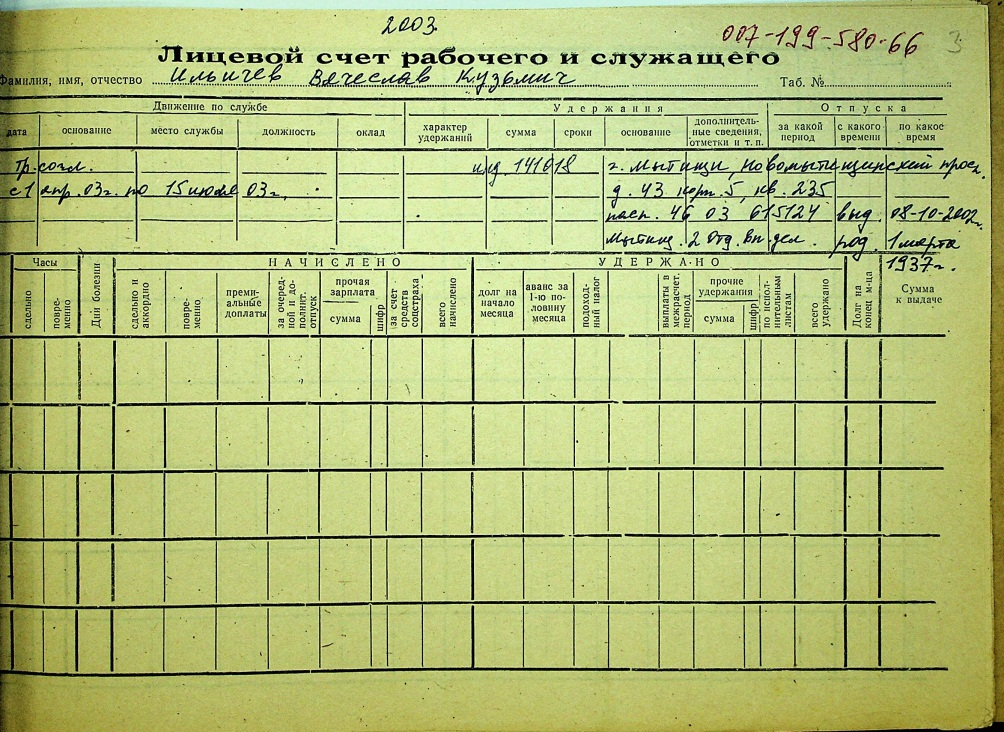 2003
007-199-580-66
3
Лицевой счет рабочего и служащего
Фамилия, имя, отчество Ильичев Вячеслав Кузьмич Таб. №
Движение по службе Удержания Отпуска
дата основание место службы должность оклад характер удержаний сумма сроки основание дополнитель-ные сведения, отметки и т. п. за какой период с какого времени по какое время
Тр. согл. инд. 141018 г. Мытищи, Новомытищинский просп.
с 1 апр. 03 г. по 15 июля 03 г. д. 43 корп. 5, кв. 235
пасп. 46 03 615124 выд. 08-10-2002г.
Мытищ. 2 Отд. вн. дел. род. 1 марта
1937 г.
Часы Дни болезни НАЧИСЛЕНО УДЕРЖАНО Долг на конец м-ца Сумма к выдаче
сдельно повре-менно сдельно и аккордно повре-менно преми-альные доплаты за очеред-ной и до-полнит. отпуск прочая зарплата сумма шифр за счет средств соцстраха всего начислено долг на начало месяца аванс за 1-ю по-ловину месяца подоход-ный налог выплаты в межрасчет. период прочие удержания сумма шифр по испол-нительным листам всего удержано